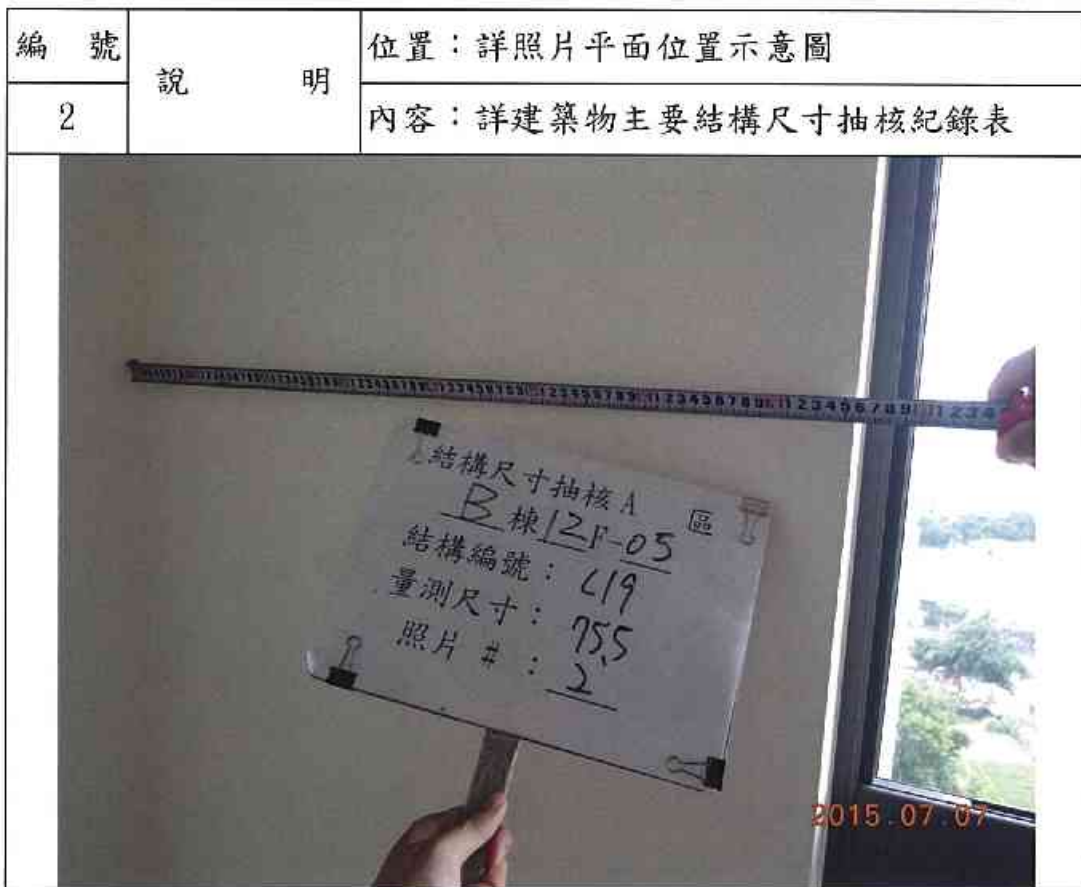 編 號
說 明
位置：詳照片平面位置示意圖
2
內容：詳建築物主要結構尺寸抽核紀錄表
結構尺寸抽核A 區
B 棟 12F-05
結構編號：C19
量測尺寸：75.5
照片 #：2
2015.07.07